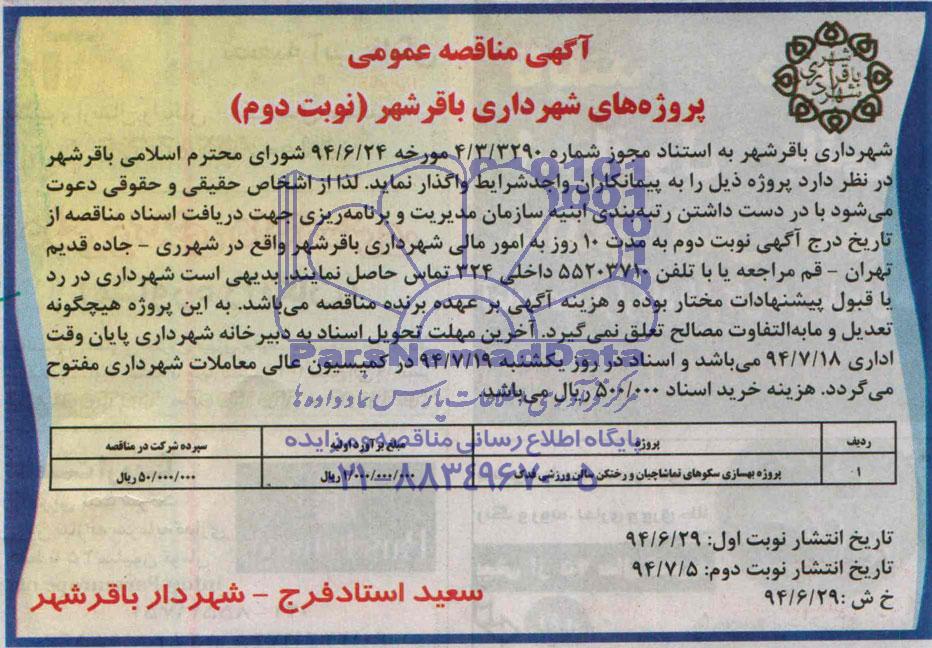 شهر
باقر
شهرداری
آگهی مناقصه عمومی
پروژه‌های شهرداری باقرشهر (نوبت دوم)
شهرداری باقرشهر به استناد مجوز شماره ۴/۳/۳۲۹۰ مورخه ۹۴/۶/۲۴ شورای محترم اسلامی باقرشهر
در نظر دارد پروژه ذیل را به پیمانکاران واجدشرایط واگذار نماید. لذا از اشخاص حقیقی و حقوقی دعوت
می‌شود با در دست داشتن رتبه‌بندی ابنیه سازمان مدیریت و برنامه‌ریزی جهت دریافت اسناد مناقصه از
تاریخ درج آگهی نوبت دوم به مدت ۱۰ روز به امور مالی شهرداری باقرشهر واقع در شهرری - جاده قدیم
تهران - قم مراجعه یا با تلفن ۵۵۲۰۳۷۱۰ داخلی ۳۲۴ تماس حاصل نمایند. بدیهی است شهرداری در رد
یا قبول پیشنهادات مختار بوده و هزینه آگهی بر عهده برنده مناقصه می‌باشد. به این پروژه هیچگونه
تعدیل و مابه‌التفاوت مصالح تعلق نمی‌گیرد. آخرین مهلت تحویل اسناد به دبیرخانه شهرداری پایان وقت
اداری ۹۴/۷/۱۸ می‌باشد و اسناد در روز یکشنبه ۹۴/۷/۱۹ در کمیسیون عالی معاملات شهرداری مفتوح
می‌گردد. هزینه خرید اسناد ۵۰۰/۰۰۰ ریال می‌باشد.
ParsNamadData
مرکز فرآوری اطلاعات پارس نماد داده‌ها
پایگاه اطلاع رسانی مناقصه و مزایده
۰۲۱-۸۸۳۴۹۶۷۰-۵
ردیف پروژه مبلغ برآورد اولیه سپرده شرکت در مناقصه
۱ پروژه بهسازی سکوهای تماشاچیان و رختکن سالن ورزشی ۱/۰۰۰/۰۰۰/۰۰۰ ریال ۵۰/۰۰۰/۰۰۰ ریال
تاریخ انتشار نوبت اول: ۹۴/۶/۲۹
تاریخ انتشار نوبت دوم: ۹۴/۷/۵
خ ش: ۹۴/۶/۲۹
سعید استادفرج - شهردار باقرشهر